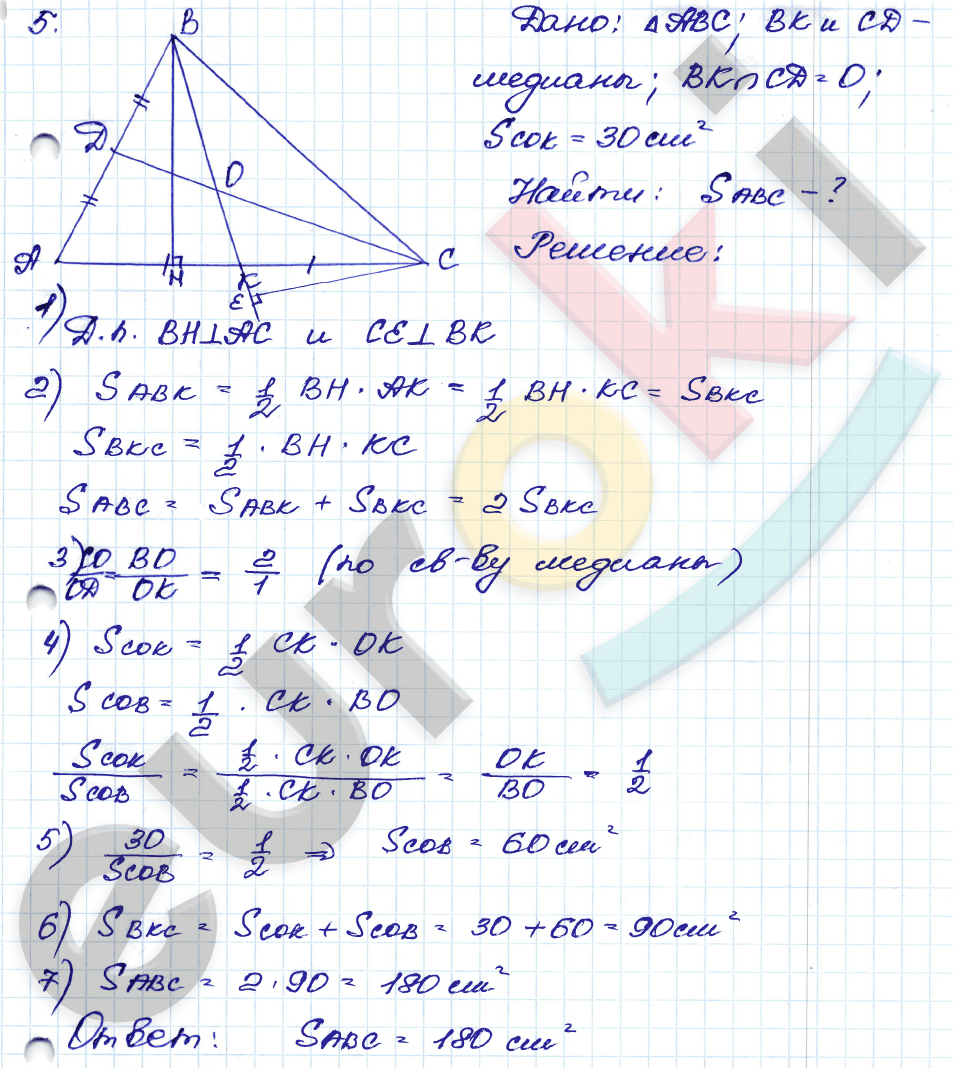 5.
B
D
O
A
H
K
E
C
Дано: △ABC; BK и CD –
медианы; BK∩CD = O;
Sсок = 30 см²
Найти: SABC – ?
Решение:
1) Д.п. BH⊥AC и CE⊥BK
2) SABK = 1/2 BH · AK = 1/2 BH · KC = SBKC
SBKC = 1/2 · BH · KC
SABC = SABK + SBKC = 2 SBKC
3) CO/OD = BO/OK = 2/1 (по св-ву медианы)
4) Sсок = 1/2 CK · OK
Sсов = 1/2 · CK · BO
Sсок/Sсов = 1/2 · CK · OK / 1/2 · CK · BO = OK/BO = 1/2
5) 30/Sсов = 1/2 ⇒ Sсов = 60 см²
6) SBKC = Sсок + Sсов = 30 + 60 = 90 см²
7) SABC = 2 · 90 = 180 см²
Ответ: SABC = 180 см²
euroki